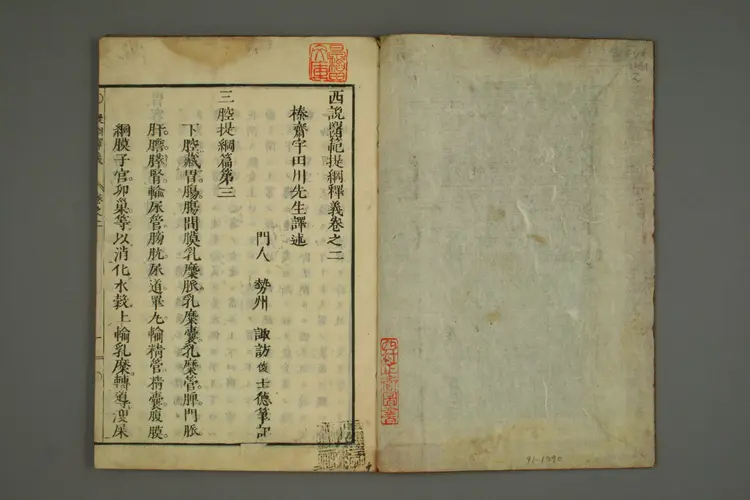 西說醫範提綱釋義卷之二
榛齋宇田川先生譯述
門人 勢州 諏訪俊士德筆記
三腔提綱篇第三
下腔藏胃腸腸間膜乳糜脈乳糜囊乳糜管脾門脈
肝膽膵腎輸尿管膀胱尿道睪丸輸精管精囊腹膜
網膜子宮卵巢等以消化水穀上輸乳糜轉導溲屎
91-1390